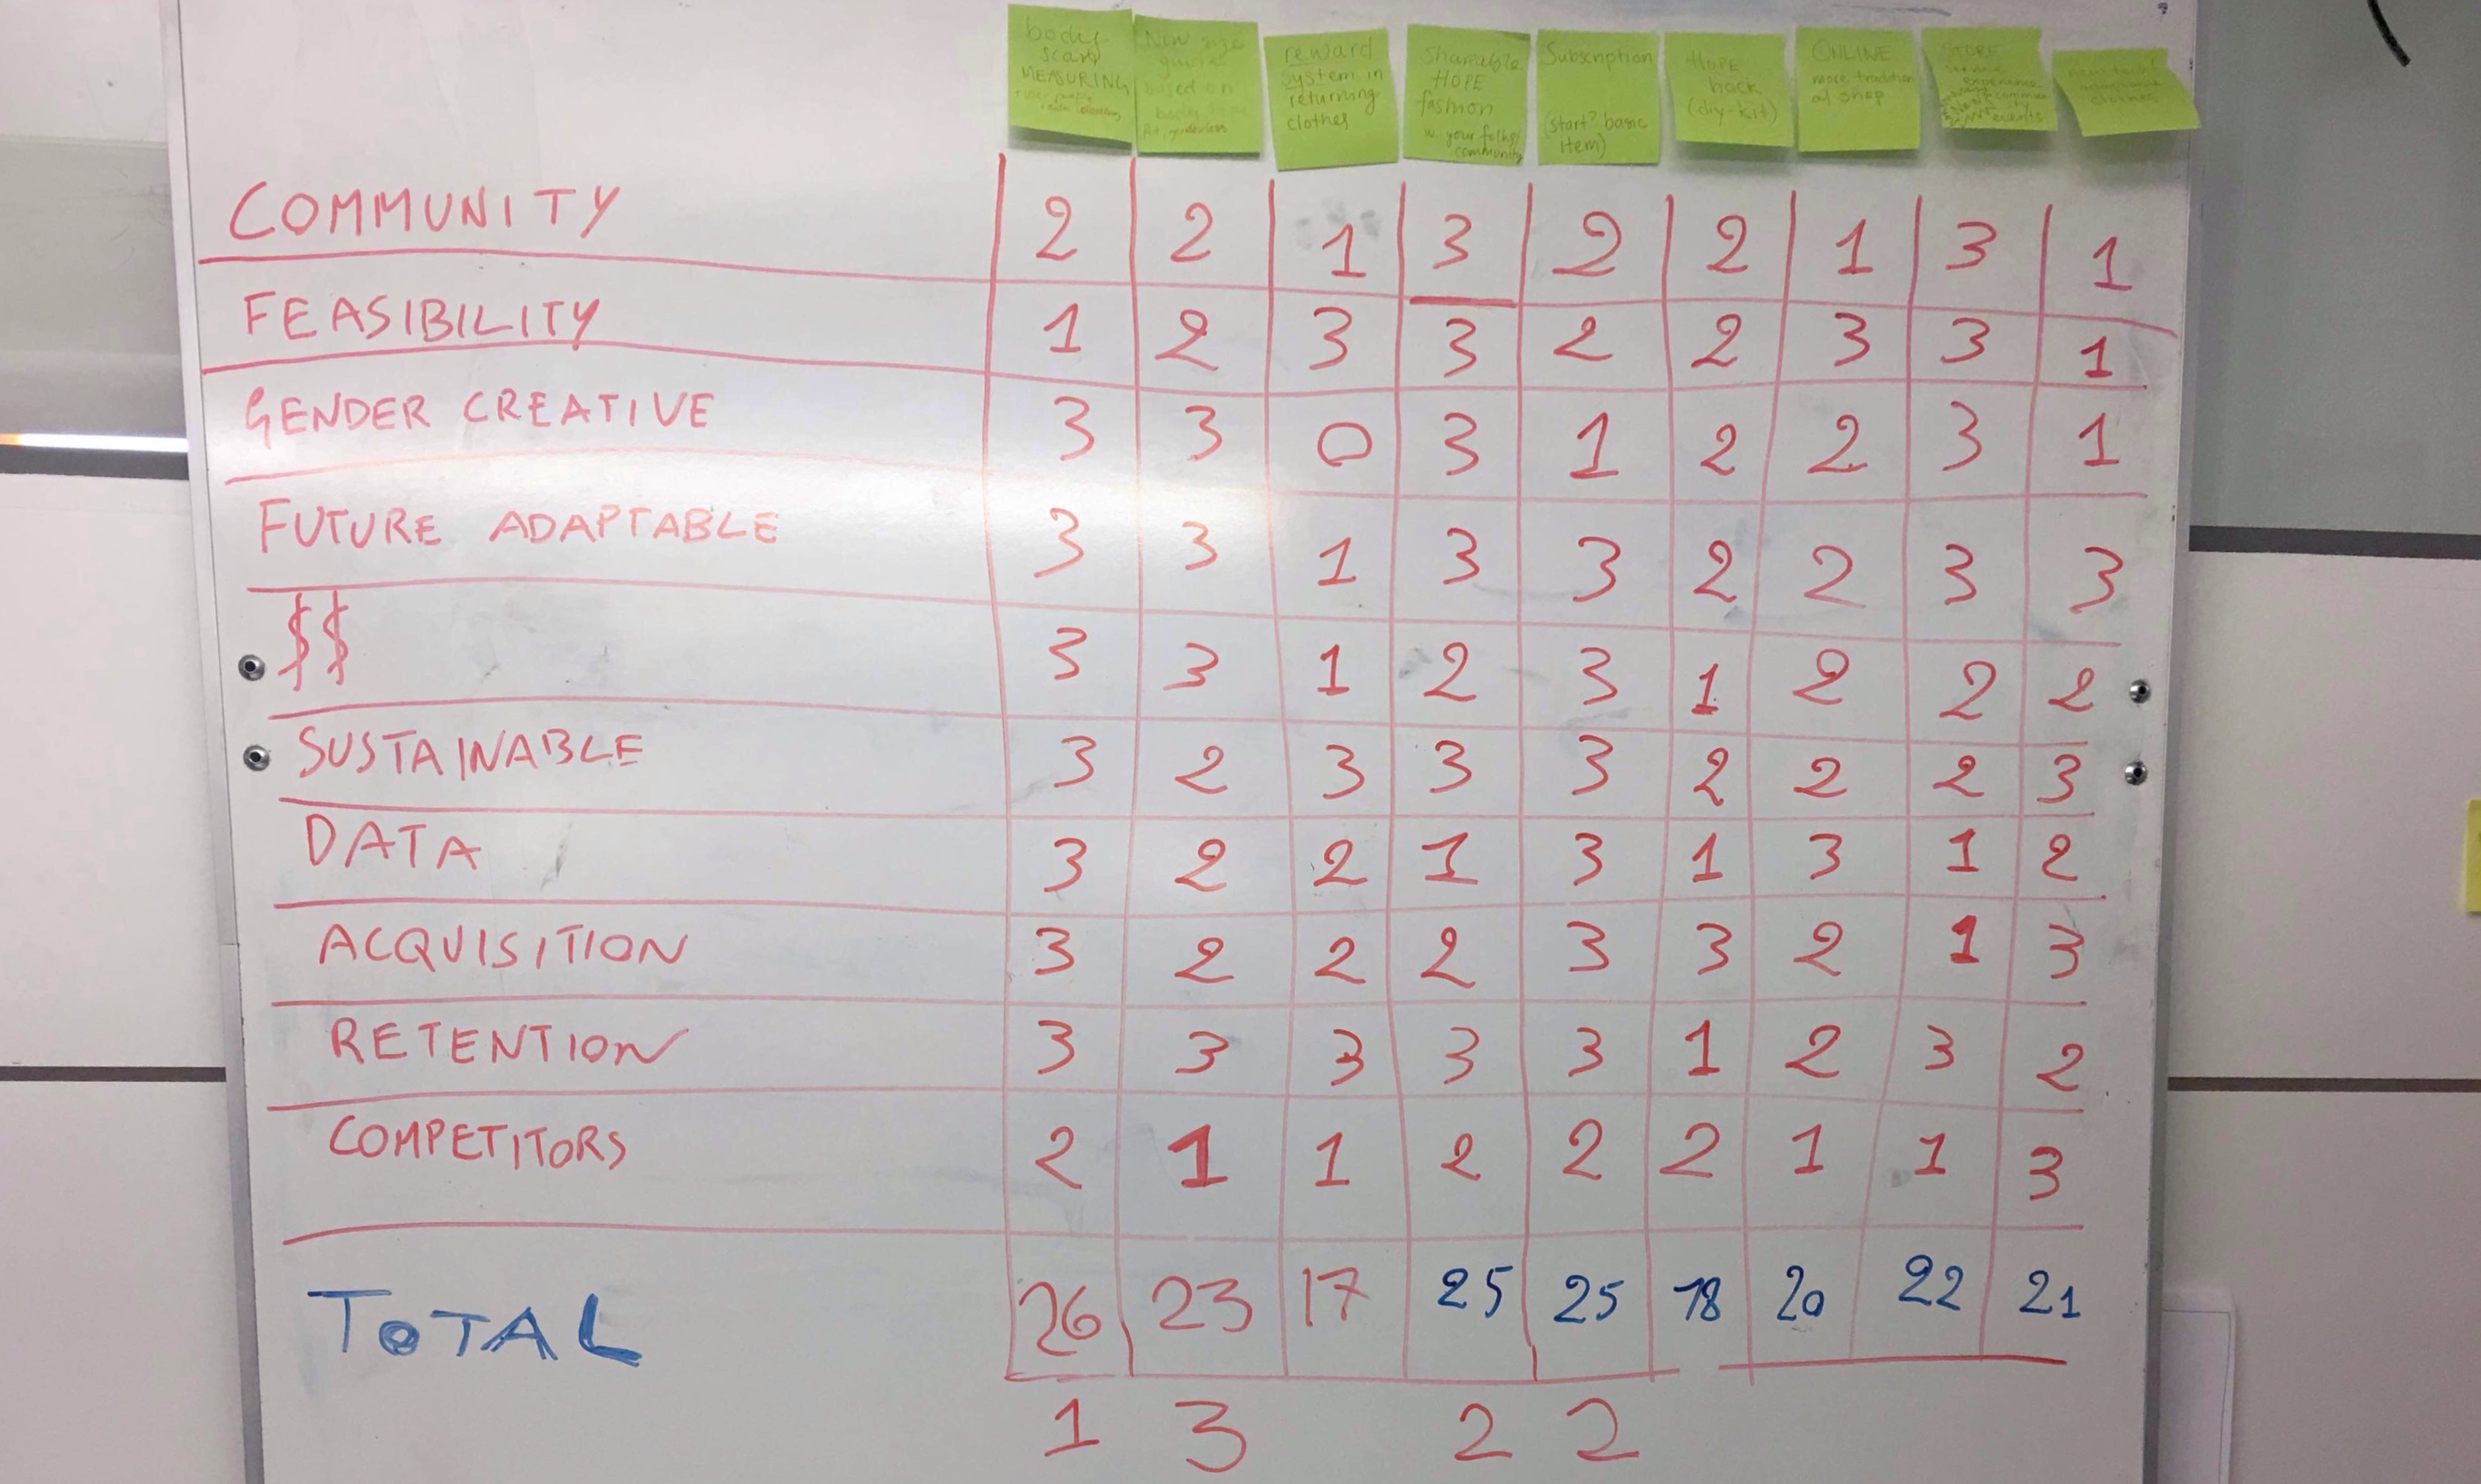 body
scan
MEASURING
New size
guide
based on
body
reward
system in
returning
clothes
Shareable
HOPE
fashion
in your folks/
community
Subscription
(start? basic
item)
HOPE
hack
(diy-kit)
ONLINE
more tradition
al shop
STORE
experience
events
clothes
COMMUNITY 2 2 1 3 2 2 1 3 1
FEASIBILITY 1 2 3 3 2 2 3 3 1
GENDER CREATIVE 3 3 0 3 1 2 2 3 1
FUTURE ADAPTABLE 3 3 1 3 3 2 2 3 3
$$ 3 3 1 2 3 1 2 2 2
SUSTAINABLE 3 2 3 3 3 2 2 2 3
DATA 3 2 2 1 3 1 3 1 2
ACQUISITION 3 2 2 2 3 3 2 1 3
RETENTION 3 3 3 3 3 1 2 3 2
COMPETITORS 2 1 1 2 2 2 1 1 3
TOTAL 26 23 17 25 25 18 20 22 21
1 3 2 2